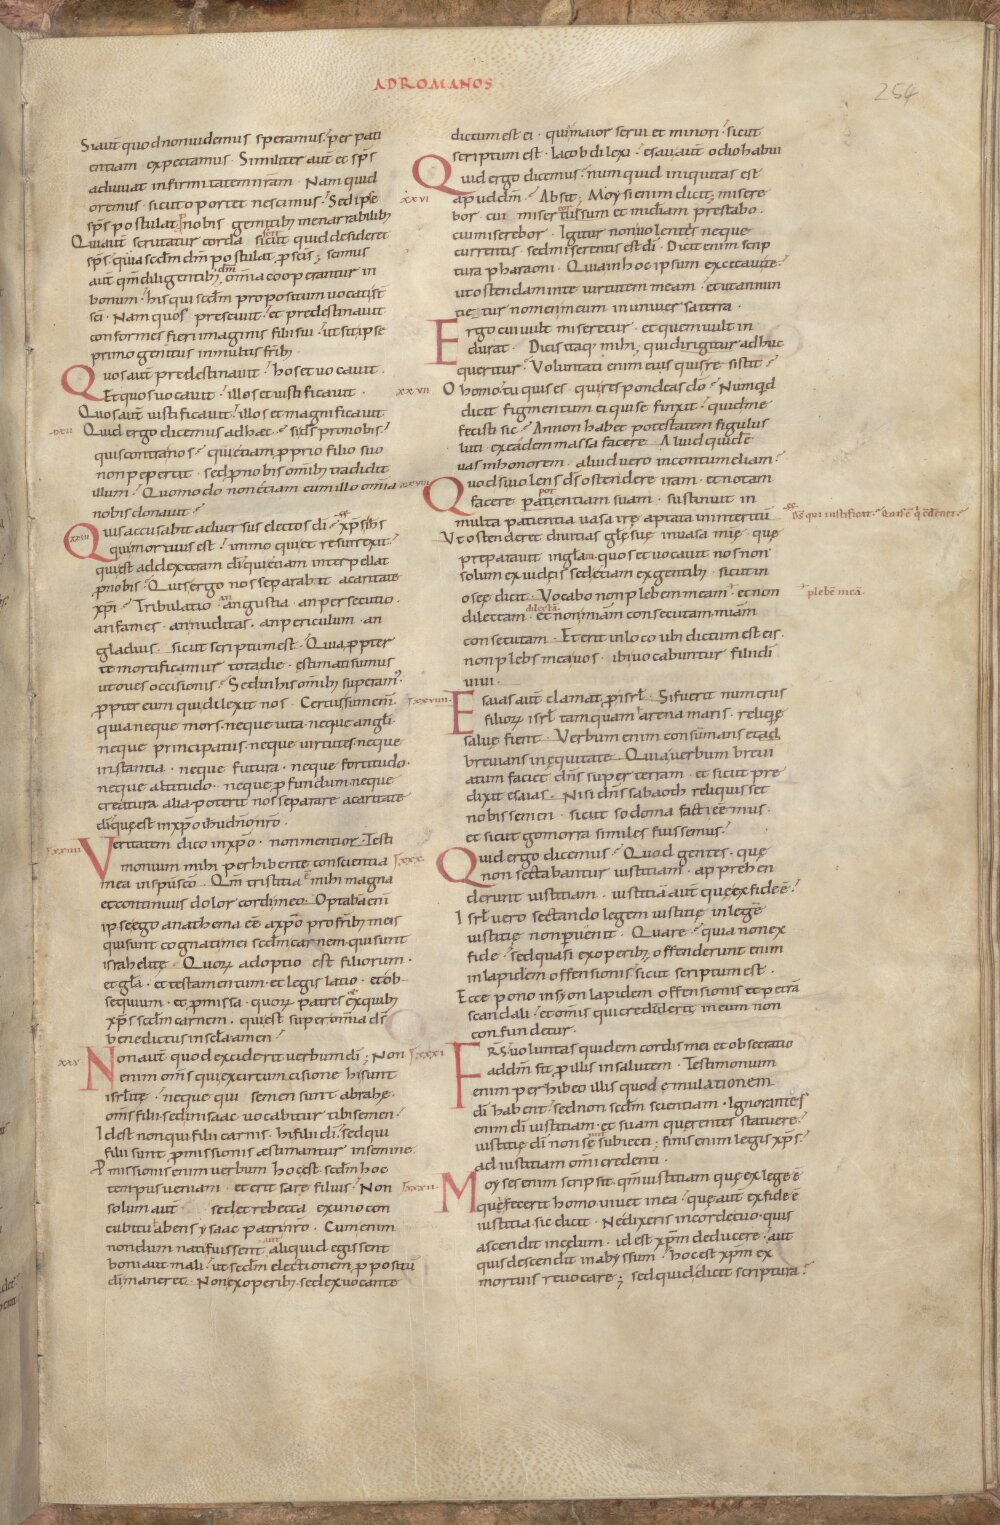 AD ROMANOS
254
Si aut̄ quod non uidemus speramus. per pati
entiam expectamus. Similiter aut̄ et sp̄s
adiuuat infirmitatem nr̄am. Nam quid
oremus sicut oportet nescimus. Sed ipse
sp̄s postulat nobis gemitib; inenarrabilib;
Qui aut̄ scrutatur corda scit quid desideret
sp̄s. quia scd̄m dm̄ postulat ꝓ scīs; scimus
aut̄ qm̄ diligentib; dm̄ om̄ia cooperantur in
bonum. his qui scd̄m propositum uocati st̄
sci. Nam quos presciuit. et predestinauit
conformes fieri imaginis filii sui. ut sit ipse
primogenitus in multis frīb;
Quos aut̄ predestinauit. hos et uocauit.
Et quos uocauit. illos et iustificauit.
Quos aut̄ iustificauit. illos et magnificauit
Quid ergo dicemus ad hæc. si ds̄ pro nobis.
quis contra nos. qui etiam ꝓprio filio suo
non pepercit. sed ꝓ nobis omīb; tradidit
illum. Quomodo non etiam cum illo om̄ia
xxviii
nobis donauit.
xxiii
Quis accusabit aduersus electos dī. xp̄s ih̄s
qui mortuus est. immo qui et resurrexit.
qui est ad dexteram dī. qui etiam interpellat
ꝓ nobis. Quis ergo nos separabit a caritate
xp̄i. Tribulatio. an angustia. an persecutio.
an fames. an nuditas. an periculum. an
gladius. sicut scriptum est. Quia ꝓpter
te mortificamur tota die. estimati sumus
ut oues occisionis. Sed in his omīb; superam;
ꝓpter eum qui dilexit nos. Certus sum enī
quia neque mors. neque uita. neque angli.
neque principatus. neque uirtutes. neque
instantia. neque futura. neque fortitudo.
neque altitudo. neque ꝓfundum. neque
creatura alia poterit nos separare a caritate
dī que est in xp̄o ih̄u dn̄o nr̄o.
Veritatem dico in xp̄o. non mentior. Testi
monium mihi perhibente conscientia
mea in sp̄u sc̄o. Qm̄ tristitia ē mihi magna
et continuus dolor cordi meo. Optabam enī
ipse ego anathema eē a xp̄o pro frīb; meis
qui sunt cognati mei scd̄m carnem. qui sunt
israhelitę. Quorum adoptio est filiorum.
et gl̄a. et testamentum. et legis latio. et ob
sequium. et ꝓmissa. quorum patres ex quib;
xp̄s scd̄m carnem. qui est super om̄ia ds̄
benedictus in scl̄a amen.
xxv
Non aut̄ quod exciderit uerbum dī; Non
enim om̄s qui ex circumcisione hi sunt
isrl̄itę. neque qui semen sunt abrahę.
om̄s filii. sed in isaac uocabitur tibi semen.
Id est non qui filii carnis. hi filii dī. sed qui
filii sunt ꝓmissionis æstimantur in semine.
Ꝓmissionis enim uerbum hoc est. scd̄m hoc
tempus ueniam. et erit sarę filius. Non
solum aut̄ sed et rebecca ex uno con
cubitu abens ysaac patri nr̄o. Cum enim
nondum nati fuissent aut aliquid egissent
boni aut mali. ut scd̄m electionem ꝓpositū
dī maneret. Non ex operib; sed ex uocante
dictum est ei. quia maior seruiet minori. sicut
scriptum est. Iacob dilexi. esau aut̄ odio habui
Quid ergo dicemus. numquid iniquitas est
xxvi
apud dm̄. Absit; Moysi enim dicit; misere
bor cui misertus sum et mīdiam prestabo.
cui miserebor. Igitur non uolentis neque
currentis. sed miserentis est dī. Dicit enim scrip
tura pharaoni. Quia in hoc ipsum excitaui te.
ut ostendam in te uirtutem meam. et ut annun
cietur nomen meum in uniuersa terra.
Ergo cui uult miseretur. et quem uult in
durat. Dicis itaq; mihi. quid irigitur adhuc
queritur. Voluntati enim eius quis resistit.
xxvii
O homo. tu quis es. qui respondeas dō. Numqid
dicit figmentum ei qui se finxit. quid me
fecisti sic. An non habet potestatem figulus
luti ex eadem massa facere. Aliud quidē
uas in honorem. aliud uero in contumeliam.
Quod si uolens ds̄ ostendere iram. et notam
facere potentiam suam. sustinuit in
multa patientia uasa irę aptata in interitū
Ds̄ qui iustificat. Quis ē q̄ cdenet.
Vt ostenderet diuitias glę suę in uasa mīę que
preparauit in glam. quos et uocauit nos non
solum ex iudeis sed etiam ex gentib; sicut in
osee dicit. Vocabo non plebem meam. et non
plebē meā.
dilectam dilectā. et non mīam consecutam mīam
consecutam. Et erit in loco ubi dictum est eis.
non plebs mea uos. ibi uocabuntur filii dī
uiui.
Esaias aut̄ clamat ꝓ isrl̄. Si fuerit numerus
filiorum isrl̄ tamquam arena maris. reliquię
saluę fient. Verbum enim consūmans et ad
breuians in equitate. Quia uerbum breui
atum faciet dn̄s super terram. et sicut pre
dixit esaias. Nisi dn̄s sabaoth reliquisset
nobis semen. sicut sodoma facti eēmus.
et sicut gomorra similes fuissemus.
Quid ergo dicemus. Quod gentes. quę
non sectabantur iustitiam. apprehen
derunt iustitiam. iustitiā aut̄ que ex fide ē.
Isrl̄ uero sectando legem iustitię in legē
iustitię non ꝑuenit. Quare. quia non ex
fide. sed quasi ex operib; offenderunt enim
in lapidem offensionis. sicut scriptum est.
Ecce pono in syon lapidem offensionis et petrā
scandali. et om̄is qui crediderit in eum non
confundetur.
Fr̄s. uoluntas quidem cordis mei et obsecratio
ad dm̄ fit ꝓ illis in salutem. Testimonium
enim perhibeo illis quod emulationem
dī habent. sed non scd̄m scientiam. Ignorantes
enim dī iustitiam. et suam querentes statuere.
iustitię dī non sunt subiecti; finis enim legis xp̄s.
ad iustitiam om̄i credenti.
Moyses enim scripsit. qm̄ iustitiam que ex lege ē
que fecerit homo uiuet in ea. que aut̄ ex fide ē
iustitia sic dicit. Ne dixeris in corde tuo. quis
ascendit in celum. id est xp̄m deducere. aut
quis descendit in abyssum. hoc est xp̄m ex
mortuis reuocare; sed quid dicit scriptura.